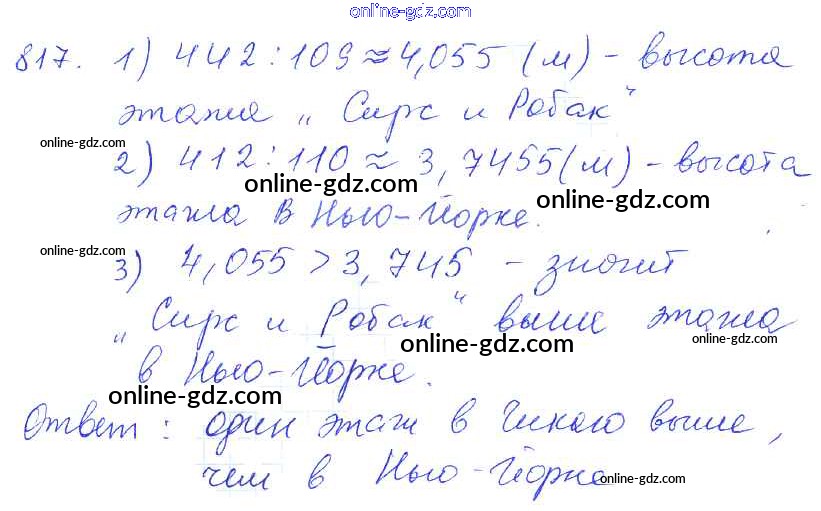 online-gdz.com
817. 1) 442 : 109 ≈ 4,055 (м) - высота
этажа „Сирс и Робак“
online-gdz.com
2) 412 : 110 ≈ 3,7455 (м) - высота
online-gdz.com
online-gdz.com
этажа в Нью-Йорке.
online-gdz.com
3) 4,055 > 3,745 - значит
„Сирс и Робак“ выше этажа
online-gdz.com
в Нью-Йорке.
online-gdz.com
Ответ: один этаж в Чикаго выше,
чем в Нью-Йорке
online-gdz.com